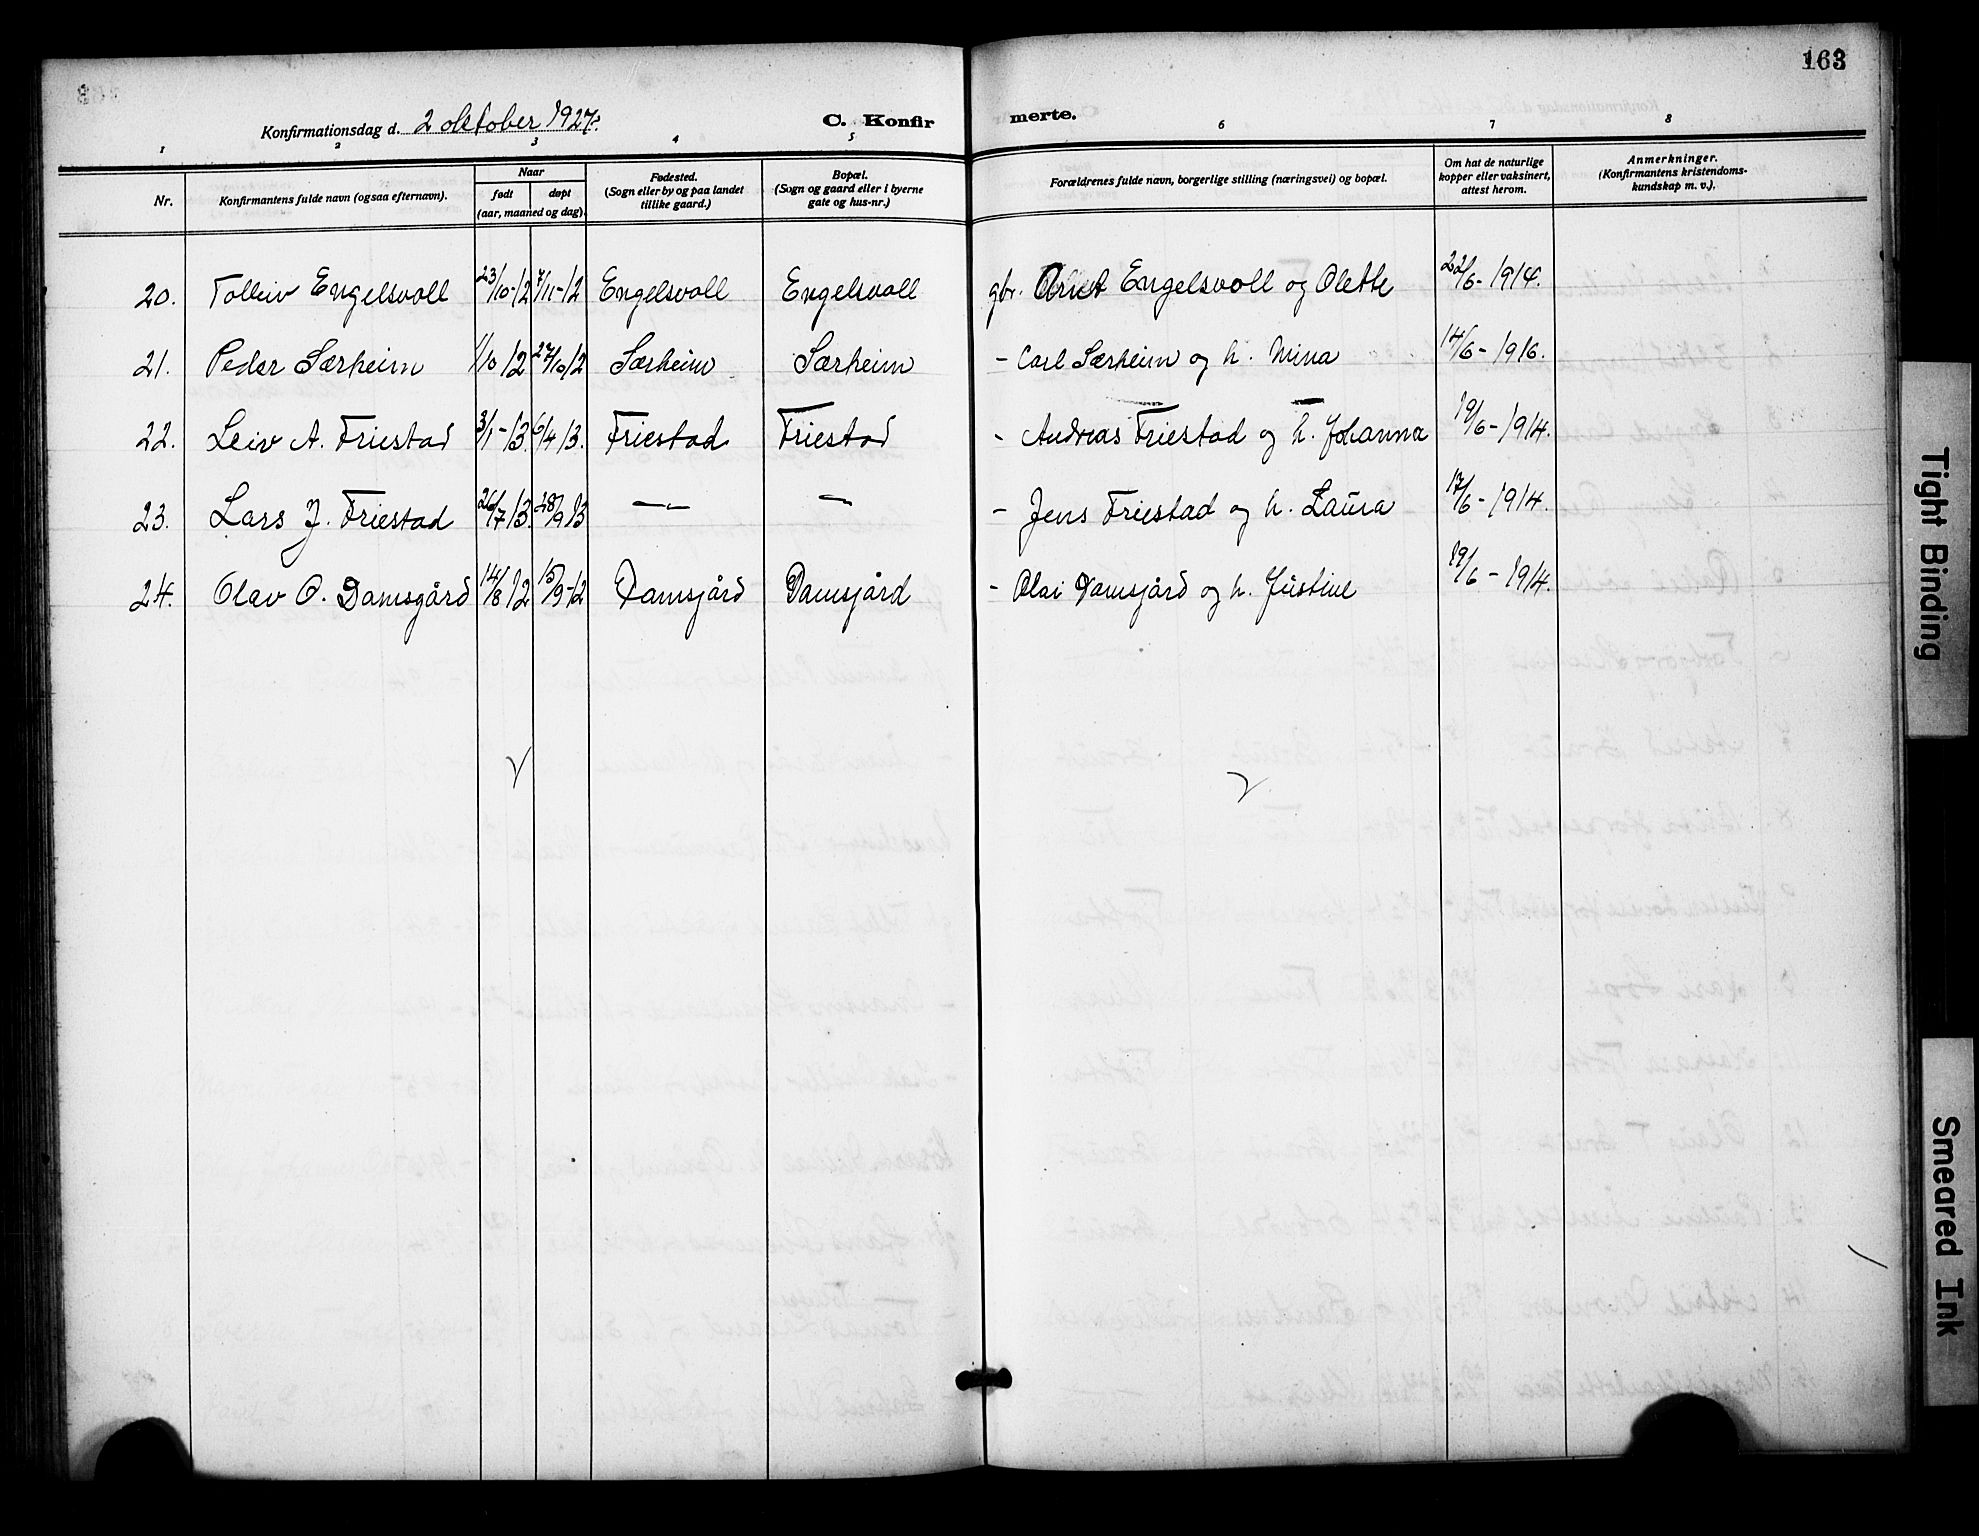 163
Konfirmationsdag d. 2 oktober 1927. C. Konfirmerte.
1 2 3 4 5 6 7 8
Nr.
Konfirmantens fulde navn (ogsaa efternavn).
Naar
født
døpt
(aar, maaned og dag).
Fødested.
(Sogn eller by og paa landet
tillike gaard.)
Bopæl.
(Sogn og gaard eller i byerne
gate og hus-nr.)
Forældrenes fulde navn, borgerlige stilling (næringsvei) og bopæl.
Om hat de naturlige
kopper eller vaksinert,
attest herom.
Anmerkninger.
(Konfirmantens kristendoms-
kundskap m. v.).
20. Tolleiv Engelsvoll 23/10-12 7/11-12 Engelsvoll Engelsvoll gbr. Engelsvoll og Olette 22/6-1914.
21. Peder Særheim 1/10 12 27/10 12 Særheim Særheim - Carl Særheim og h. Mina 14/6-1916.
22. Leiv A. Friestad 3/1-13. 6/4 13. Friestad Friestad - Andreas Friestad og h. Johanna 19/6-1914.
23. Lars J. Friestad 26/7 13. 28/9 13 — — - Jens Friestad og h. Laura 17/6-1914.
24. Olav O. Damsgård 14/8 12 15/9-12 Damsgård Damsgård - Olai Damsgård og h. Justine 19/6-1914.
Tight Binding
Smeared Ink